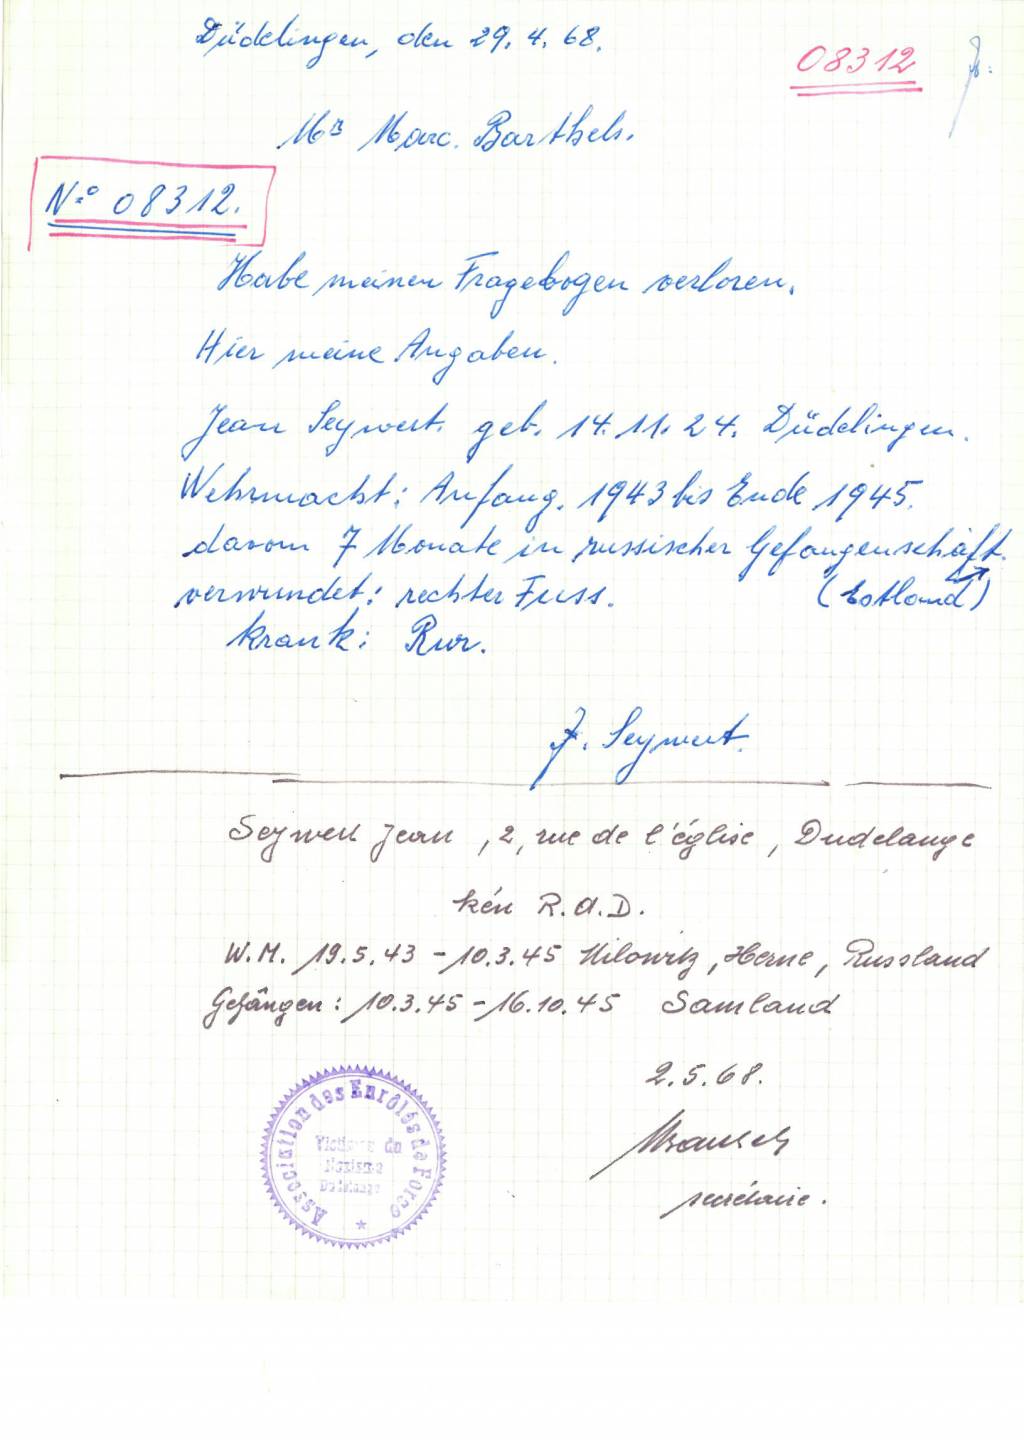 Düdelingen, den 29. 4. 68.
08312
Mr Marc. Barthels.
No 08312.
Habe meinen Fragebogen verloren.
Hier meine Angaben.
Jean Seywert. geb. 14.11.24. Düdelingen.
Wehrmacht: Anfang. 1943 bis Ende 1945.
davon 7 Monate in russischer Gefangenschaft.
verwundet: rechter Fuss. (Estland)
krank: Rur.
J. Seywert.
Seywert Jean, 2, rue de l'église, Dudelange
kén R.A.D.
W.M. 19.5.43 - 10.3.45 Milowitz, Herne, Russland
Gefangen: 10.3.45 - 16.10.45 Samland
2.5.68.
secrétaire.
Association des Enrôlés de Force
Victimes du
Nazisme
Dudelange